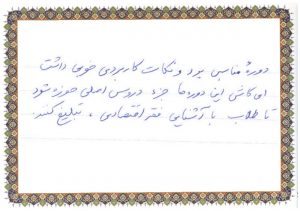 دورهٔ مناسبی بود و نکات کاربردی خوبی داشت
ای کاش این دوره‌ها جزء دروس اصلی حوزه شود
تا طلاب با آشنایی فقر اقتصادی، تبلیغ کنند